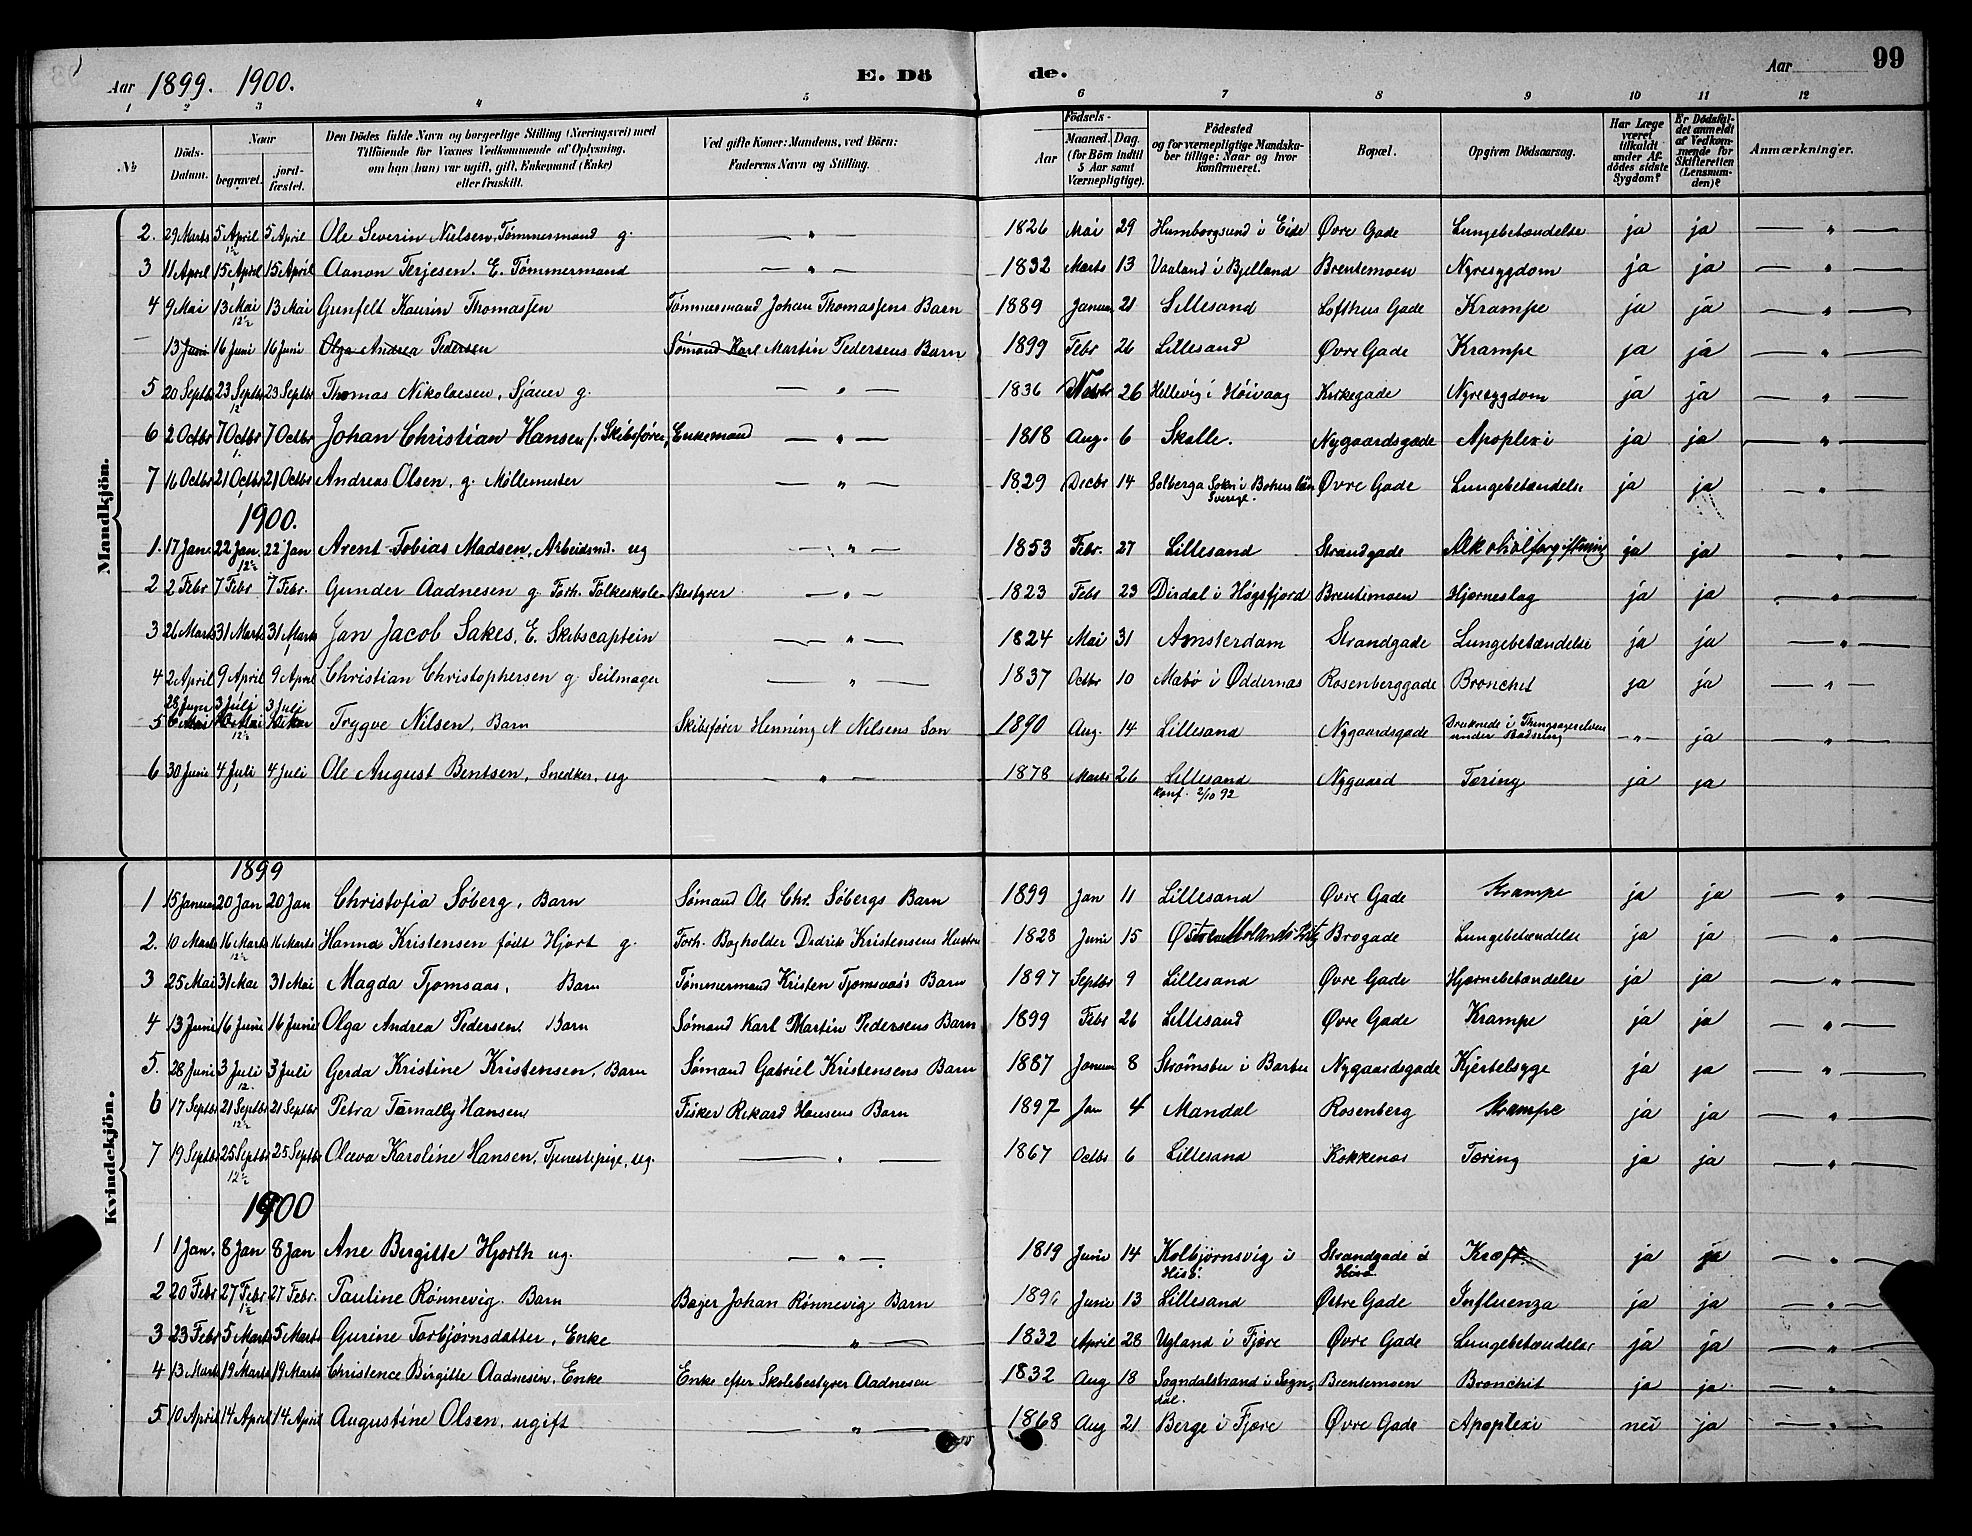 Aar 1899. 1900. E. Dö de. Aar 99
1 2 3 4 5 6 7 8 9 10 11 12
№ Döds-Datum. Naar begravet. jordfæstet. Den Dödes fulde Navn og borgerlige Stilling (Næringsvei) med Tilföiende for Voxnes Vedkommende af Oplysning, om han (hun) var ugift, gift, Enkemand (Enke) eller fraskilt. Ved gifte Koner: Mandens, ved Börn: Faderens Navn og Stilling. Födsels- Aar Maaned. Dag. (for Börn indtil 5 Aar samt Værnepligtige). Födested og for værnepligtige Mandskaber tillige: Naar og hvor konfirmeret. Bopæl. Opgiven Dödsaarsag. Har Læge været tilkaldt under Afdödes sidste Sygdom? Er Dödsfaldet anmeldt af Vedkommende for Skifteretten (Lensmanden)? Anmærkninger.
Mandkjön.
2. 29 Marts 5 April 5 April Ole Severin Nielsen, Tømmermand g. — " — 1826 Mai 29 Humborgsund i Eide Øvre Gade Lungebetændelse ja ja — " —
12½
3 11 April 15 April 15 April Aanon Terjesen. E. Tømmermand — " — 1832 Marts 13 Vaaland i Bjelland Brentemoen Nyresygdom ja ja — " —
4 9 Mai 13 Mai 13 Mai Gunfelt Kaurin Thomassen Tømmermand Johan Thomassens Barn 1889 Januar 21 Lillesand Lofthus Gade Krampe ja ja — " —
12½
— 13 Juni 16 Juni 16 Juni Olga Andrea Pedersen Sømand Karl Martin Pedersens Barn 1899 Febr 26 Lillesand Øvre Gade Krampe ja ja — " —
5 20 Septbr 23 Septbr 23 Septbr Thomas Nikolaesen, Sjauer g. — " — 1836 26 Hellevig i Høivaag Kirkegade Nyresygdom ja ja — " —
12
6 2 Octbr 7 Octbr 7 Octbr Johan Christian Hansen f. Skibsfører, Enkemand — " — 1818 Aug. 6 Skolle. Nygaardsgade Apoplexi ja ja — " —
1.
7 16 Octbr 21 Octbr 21 Octbr Andreas Olsen, g. Møllemester — " — 1829 Decbr 14 Solberga Sokn i Bohus län Øvre Gade Lungebetændelse ja ja — " —
Sverige.
1900.
1. 17 Jan. 22 Jan. 22 Jan Arent Tobias Madsen, Arbeidsmd. ug — " — 1853 Febr. 27 Lillesand Strandgade Alkoholforgiftning ja ja — " —
12½
2 2 Febr 7 Febr 7 Febr. Gunder Aadnesen g. Forh. Folkeskole-Bestyrer — " — 1823 Febr 23 Dirdal i Høgsfjord Brentemoen Hjerneslag ja ja — " —
3 26 Marts 31 Marts 31 Marts Jan Jacob Sakes, E. Skibscaptein — " — 1824 Mai 31 Amsterdam Strandgade Lungebetændelse ja ja — " —
4 2 April 9 April 9 April Christian Christophersen g. Seilmager — " — 1837 Octbr 10 Mæbø i Øddernas Rosenberggade Bronchit ja ja — " —
28 Juni 3 Juli 3 Juli
5 6 Mai 10 Mai 10 Mai Trygve Nilsen, Barn Skibsfører Henning N Nilsens Søn 1890 Aug. 14 Lillesand Nygaardsgade Druknede i Thingsagerelven under Badning — " — ja — " —
12½
6 30 Juni 4 Juli 4 Juli Ole August Bentsen, Snedker, ug — " — 1878 Marts 26 Lillesand Nygaard Tæring ja ja — " —
Konf. 2/10 92
Kvindekjön.
1899
1 15 Januar 20 Jan 20 Jan Christofia Søberg, Barn Sømand Ole Chr. Søbergs Barn 1899 Jan 11 Lillesand Øvre Gade Krampe ja ja — " —
2. 10 Marts 16 Marts 16 Marts Hanna Kristensen født Hjort g. Forh. Bogholder Didrik Kristensens Hustru 1828 Juni 15 Brogade Lungebetændelse ja ja — " —
12½
3 25 Mai 31 Mai 31 Mai Magda Tjomsaas, Barn Tømmermand Kristen Tjomsaas's Barn 1897 Septbr 9 Lillesand Øvre Gade Hjernebetændelse ja ja — " —
4 13 Juni 16 Juni 16 Juni Olga Andrea Pedersen, Barn Sømand Karl Martin Pedersens Barn 1899 Febr 26 Lillesand Øvre Gade Krampe ja ja — " —
5. 28 Juni 3 Juli 3 Juli Gerda Kristine Kristensen, Barn Sømand Gabriel Kristensens Barn 1887 Januar 8 Strømsbu i Barbu Nygaardsgade Kjertelsyge ja ja — " —
12.
6 17 Septbr 21 Septbr 21 Septbr Petra Hansen Fisker Rikard Hansens Barn 1897 Jan 4 Mandal Rosenberg Krampe ja ja — " —
12½
7 19 Septbr 25 Septbr 25 Septbr Olava Karoline Hansen, Tjenestepige, ug. — " — 1867 Octbr 6 Lillesand Kokkenes Tæring ja ja — " —
12½
1900
1 1 Jan. 8 Jan 8 Jan Ane Bergitte Hjorth ug. — " — 1819 Juni 14 Kolbjørnsvig i Strandgade i Kræft ja ja — " —
Hisø. Hisø
2 20 Febr 27 Febr 27 Febr. Pauline Rönnevig. Barn Bager Johan Rönnevig Barn Juni 13 Lillesand Østre Gade Influenza ja ja — " —
1½
3 23 Febr 5 Marts 5 Marts Gurine Torbjørnsdatter, Enke " — 1832 April 28 Ugland i Fjære Øvre Gade Lungebetændelse ja ja — " —
4 13 Marts 19 Marts 19 Marts Christence Birgitte Aadnesen, Enke Enke efter Skolebestyrer Aadnesen 1832 Aug 18 Sogndalstrand i Sogndal. Brentemoen Bronchit ja ja — " —
5 10 April 14 April 14 April Augustine Olsen, ugift — " — 1868 Aug 21 Berge i Fjære Øvre Gade Apoplexi nei ja — " —